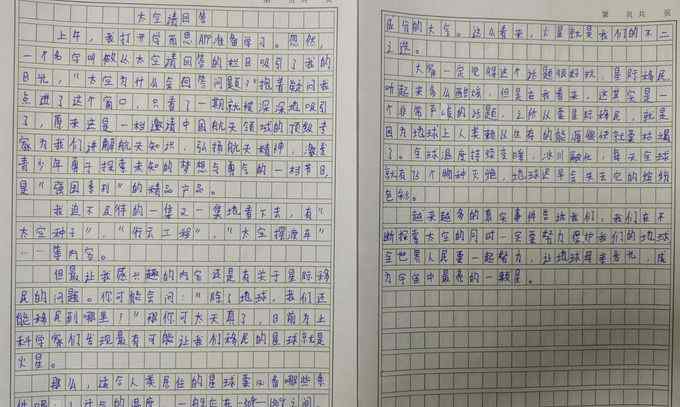 太空请回答
上午，我打开学而思APP准备学习。忽然，
一个名字叫做《太空请回答》的栏目吸引了我的
目光，"太空为什么会回答问题？"抱着疑问我
点进了这个窗口，只看了一期就被深深地吸引
了，原来这是一档邀请中国航天领域的顶级专
家为我们讲解航天知识，弘扬航天精神，激发
青少年勇于探索未知的梦想与勇气的一档节目，
是"强国系列"的精品产品。
我迫不及待的一集又一集地看下去，有"
太空种子"，"衍云工程"，"太空摆渡车"
……等内容。
但最让我感兴趣的内容还是有关于星际移
民的问题。你可能会问："除了地球，我们还
能移民到哪里？"那你可太天真了，目前为止
科学家们发现最有可能让我们移民的星球就是
火星。
那么，适合人类居住的星球要必备哪些条
件呢：1.适当的温度，一般在在
第 页 共 页
成分的大气。这么看来，火星就是我们的不二
之选。
大家一定觉得这个话题很好玩，星际移民
听起来多么酷炫，但是在我看来，这其实是一
个非常严峻的话题。之所以要星际移民，就是
因为地球上人类赖以生存的能源很快就要枯竭
了。全球温度持续变暖，冰川融化，每天全球
就有75个物种灭绝，地球迟早会失去它的缤纷
色彩。
越来越多的真实事件告诉我们，我们在不
断探索太空的同时一定要努力保护我们的地球
全世界人民要一起努力，让地球母亲，成
为宇宙中最亮的一颗星。
第 页 共 页